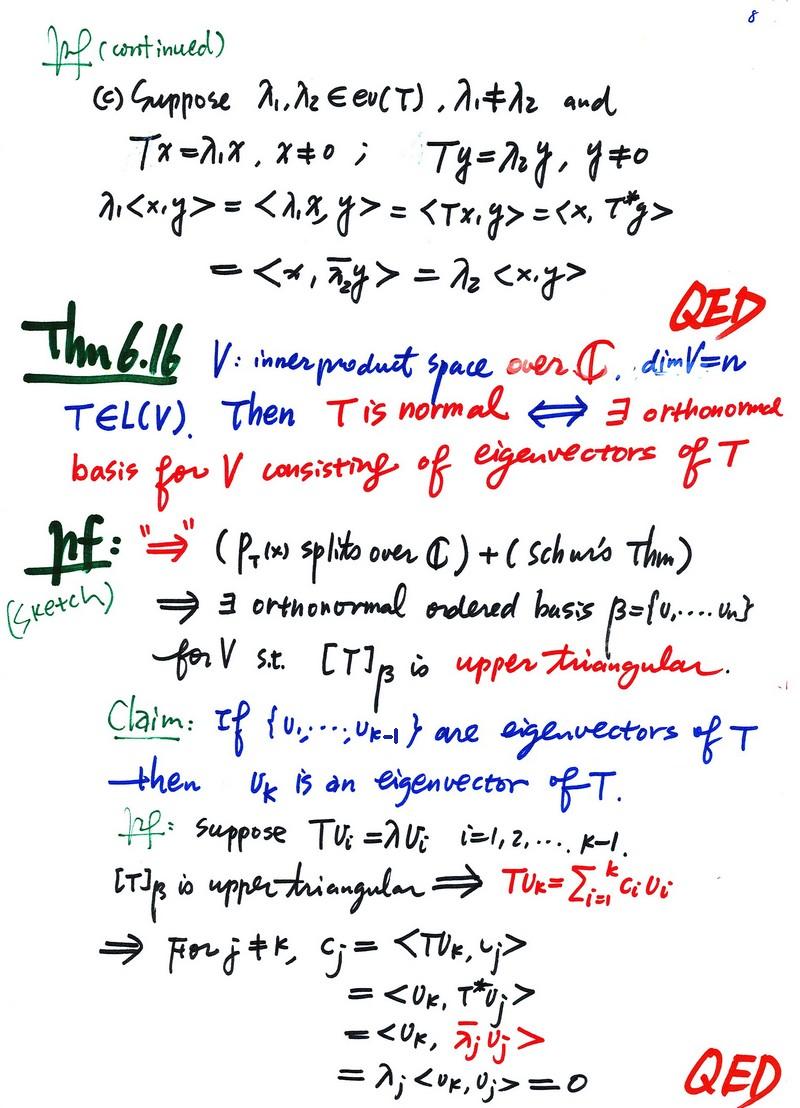 8
pf (continued)
(c) Suppose λ₁, λ₂ ∈ ev(T), λ₁ ≠ λ₂ and
Tx = λ₁x, x ≠ 0 ; Ty = λ₂y, y ≠ 0
λ₁<x,y> = <λ₁x, y> = <Tx,y> = <x, T*y>
= <x, λ̄₂y> = λ₂ <x,y>
QED
Thm 6.16 V: inner product space over ℂ. dimV=n
T∈L(V). Then T is normal ⟺ ∃ orthonormal
basis for V consisting of eigenvectors of T
pf: "⇒" (P_T(x) splits over ℂ) + (Schur's Thm)
(sketch) ⇒ ∃ orthonormal ordered basis β={υ₁.... υₙ}
for V s.t. [T]_β is upper triangular.
Claim: If {υ₁,...,υₖ₋₁} are eigenvectors of T
then υₖ is an eigenvector of T.
pf: suppose Tυᵢ = λυᵢ i=1,2,... k-1.
[T]_β is upper triangular ⇒ Tυₖ = ∑ᵢ₌₁ᵏ cᵢυᵢ
⇒ For j ≠ k, cⱼ = <Tυₖ, υⱼ>
= <υₖ, T*υⱼ>
= <υₖ, λ̄ⱼυⱼ>
= λⱼ <υₖ, υⱼ> = 0
QED